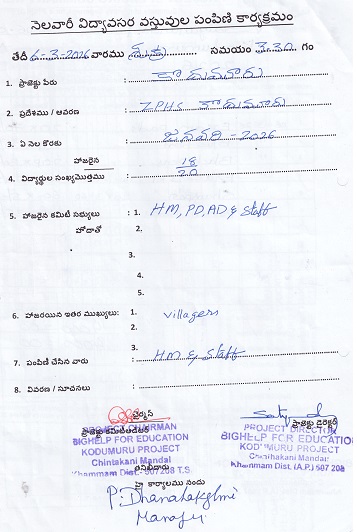 నెలవారీ విద్యావసర వస్తువుల పంపిణి కార్యక్రమం
తేదీ 6-3-2026 వారము శుక్ర సమయం 3.30 గం
1. ప్రాజెక్టు పేరు : కొదుమూరు
2. ప్రదేశము / ఆవరణ : ZPHS కొదుమూరు
3. ఏ నెల కొరకు : జనవరి - 2026
హాజరైన 18
4. విద్యార్థుల సంఖ్యమొత్తము : 20
5. హాజరైన కమిటీ సభ్యులు : 1. HM, PD, AD & Staff
హోదాతో 2.
3.
4.
5.
6. హాజరయిన ఇతర ముఖ్యులు: 1. Villagers
2.
3.
7. పంపిణి చేసిన వారు : HM & Staff
8. వివరణ / సూచనలు :
ఛైర్మన్
ప్రాజెక్టు కమిటీ ప్రాజెక్టు డైరెక్టర్
PROJECT CHAIRMAN
BIGHELP FOR EDUCATION
KODUMURU PROJECT
Chintakani Mandal
Khammam Dist.- 507 208 T.S.
PROJECT DIRECTOR
BIGHELP FOR EDUCATION
KODUMURU PROJECT
Chinthakani Mandal
Khammam Dist. (A.P.) 507 208
హె కార్యాలము నందు
P. Dhanalakshmi
Manager